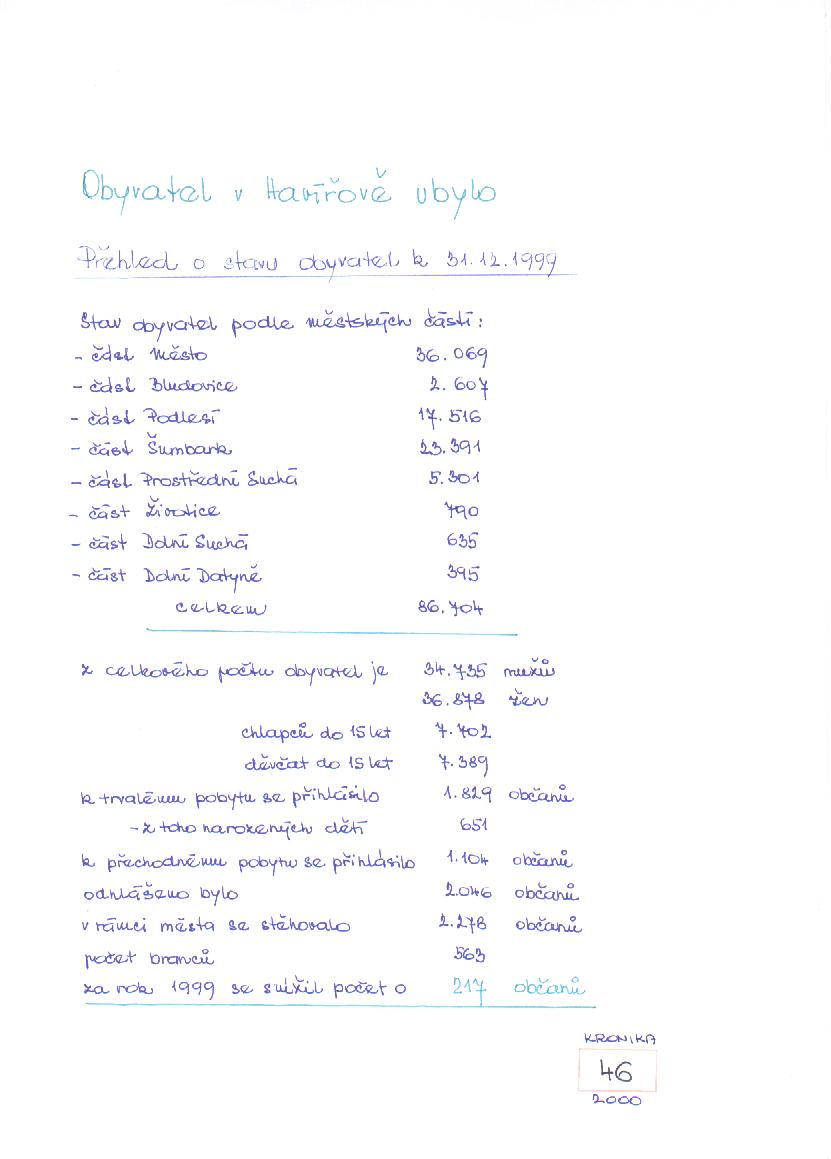 Obyvatel v Havířově ubylo
Přehled o stavu obyvatel k 31.12.1999
Stav obyvatel podle městských částí:
- část Město 36.069
- část Bludovice 2.607
- část Podlesí 17.516
- část Šumbark 23.391
- část Prostřední Suchá 5.301
- část Životice 790
- část Dolní Suchá 635
- část Dolní Datyně 395
celkem 86.704
z celkového počtu obyvatel je 34.735 mužů
36.878 žen
chlapců do 15 let 7.702
děvčat do 15 let 7.389
k trvalému pobytu se přihlásilo 1.829 občanů
- z toho narozených dětí 651
k přechodnému pobytu se přihlásilo 1.104 občanů
odhlášeno bylo 2.046 občanů
v rámci města se stěhovalo 2.278 občanů
počet branců 563
za rok 1999 se snížil počet o 217 občanů
KRONIKA
46
2000